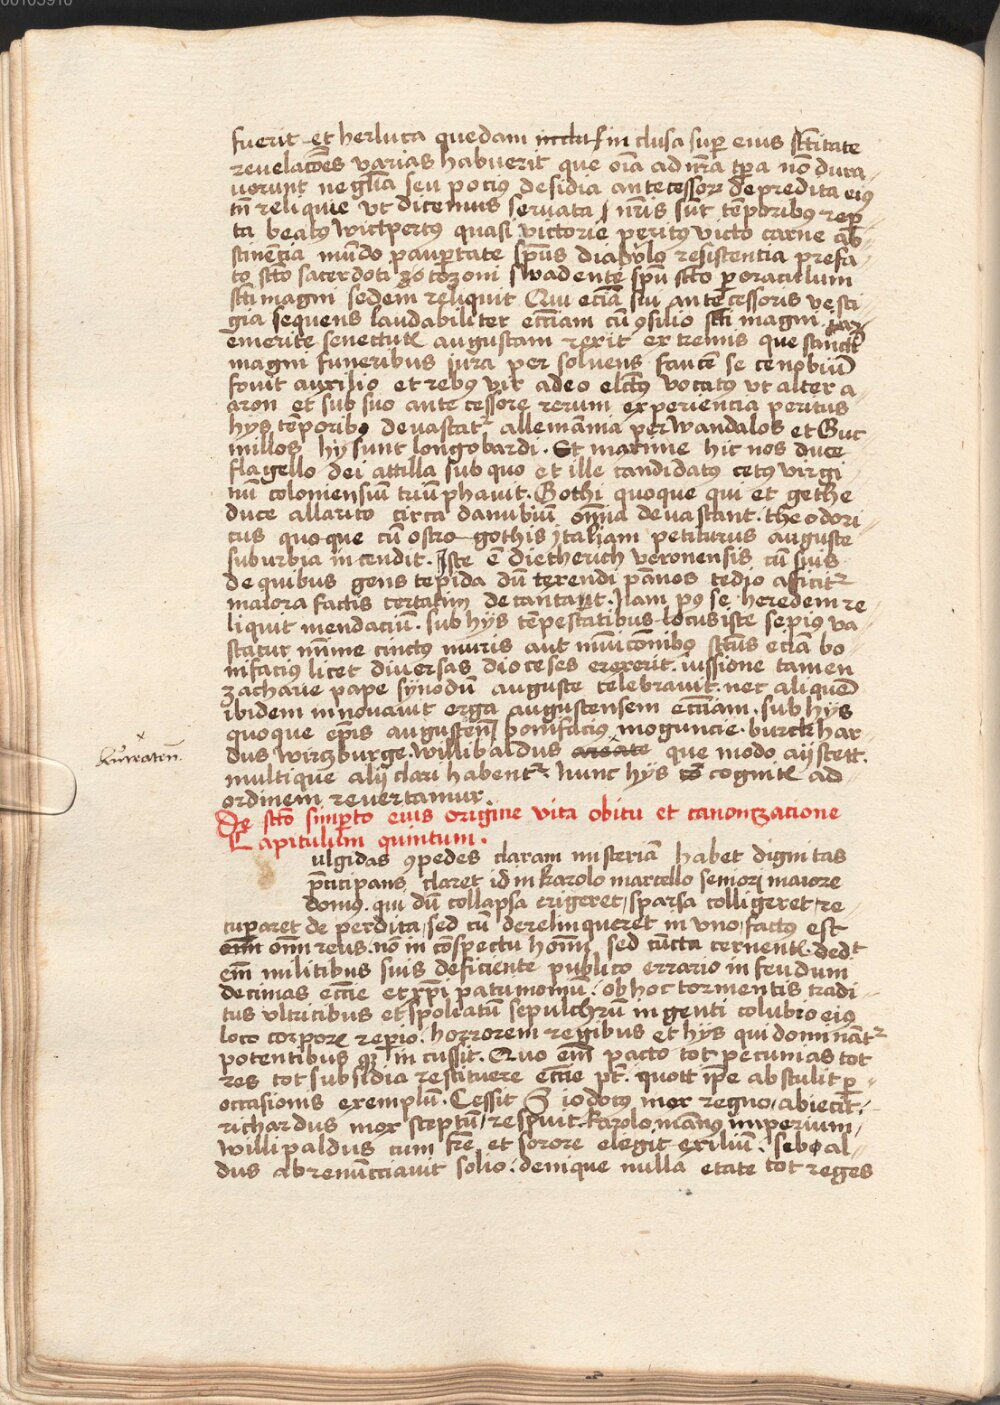 00105910
fuerit et herluca quedam inclus in clusa sup̲ eius sc̄titate
reuelacōes varias habuerit que oīa ad nr̄a tp̄a nō dura
uerunt neglīa seu pociꝰ desidia antecessoꝝ de predita eiꝰ
tn̄ reliquie vt dicemus seruata / nr̄is sūt tēporibus rep̲
ta beatꝰ wictpertꝰ quasi victorie peritꝰ victo carne ab
stinēcia mūdo paup̲tate sp̄us diabȳlo resistencia prefa
to sc̄to sacerdoti zotozoni swadente sp̄u sc̄to p̲ oraculum
sc̄ti magni sedem reliquit Qui eciā sui antecessoris vesti
gia sequens laudabiliter ecc̄iam cū ꝯsilio sc̄ti magni
emerite senectutꝭ augustam rexit extremis que sancti
magni funeribus iura per soluens faucē se cenobiū
fouit auxilio et rebꝰ vir adeo elc̄tꝰ vocatꝰ vt alter a
aron et sub suo ante cessore rerum experiencia peritus
hys tēporibꝰ deuastatʳ allemānia per wandalos et Guc
millos hy sunt longobardi . Et maxime hic nos duce
flagello dei attilla sub quo et ille candidatꝰ cetꝰ virgi
nū coloniensiū triūphauit . Gothi quoque qui et gethe
duce allarico circa danubiū om̄ia deuastant . theodori
cus quoque cū ostro gothis ytaliam petiturus auguste
suburbia incendit . Iste ē dietherich veronensis cū suis
de quibus gens tepida dū texendi pānos tedio afficitʳ
maiora factis certatim decantant . Nam pꝰ se heredem re
liquit mendaciū . sub hȳs tēpestatibus locus iste sepiꝰ va
statur mīme cinctꝰ muris aut municōnibꝰ sc̄tus eciā bo
nifacius licet diuersas dioceses erexerit . iussione tamen
zacharie pape synodū auguste celebrauit . nec aliquē
ibidem innouauit erga augustensem ecc̄iam . sub hȳs
quoque ep̄is augusten̄ / bonifacius moguncie . burckhar
dus wirczburge . willibaldus areate que modo aystett .
multique alȳ clari habentʳ nunc hȳs cognitꝭ ad
ordinem reuertamur .
De sc̄to simp̲to eius origine vita obitu et canonzacione
Capitulum quintum .
ulgidas ꝯpedes claram misteriā habet dignitas
p̄ticipans claret id in karolo marcello seniori maiore
domꝰ . qui dū collapsa erigeret / sparsa colligeret / re
cup̲aret de perdita / sed cū derelinqueret in vno / factꝰ est
om̄i reus . nō in cōspectu hoīm sed cūcta cernentꝭ . dedt
em̄ militibus suis deficiente publico errario in feudum
decimas ecc̄ie et xp̄i patrimoniū . ob hoc tormentis tradi
tus vltricibus et spoleatū sepulchrū ingenti colubro eiꝰ
loco corporꝭ rep̲io . horrorem regibus et hȳs qui dominātʳ
potentibus qꝫ incussit . Quo em̄ pacto tot pecunias tot
res tot subsidia restituere ecc̄ie pt̄ . quott ip̄e abstulit p̲
occasionis exemplū . Cessit iodocus mox regno / abiecit /
richardus mox sceptrū / respuit . karolomānꝰ imperium /
willipaldus cum fr̄e et sorore elegit exiliū . sebal
dus abrenūcciauit solio . denique nulla etate tot reges